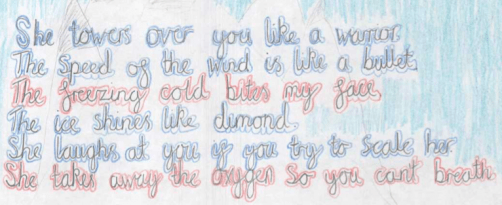 She towers over you like a warrior.
The speed of the wind is like a bullet.
The freezing cold bites my face.
The ice shines like dimond.
She laughs at you if you try to scale her
She takes away the oxygen so you cant breath.